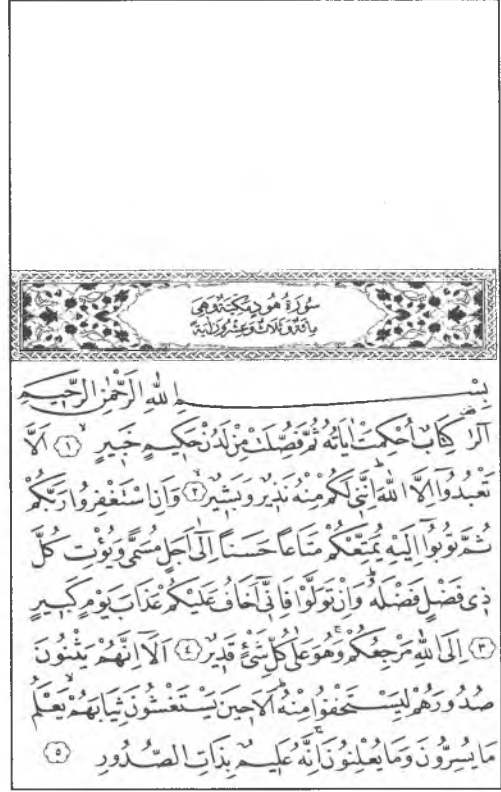 سُورَةُ هُودٍ مَكِّيَّةٌ وَهِيَ
مِائَةٌ وَثَلَاثٌ وَعِشْرُونَ اٰيَةً
بِسْمِ اللّٰهِ الرَّحْمٰنِ الرَّح۪يمِ
الٓرٰ كِتَابٌ اُحْكِمَتْ اٰيَاتُهُ ثُمَّ فُصِّلَتْ مِنْ لَدُنْ حَك۪يمٍ خَب۪يرٍۙ ﴿١﴾ اَلَّا
تَعْبُدُٓوا اِلَّا اللّٰهَۜ اِنَّن۪ي لَكُمْ مِنْهُ نَذ۪يرٌ وَبَش۪يرٌۙ ﴿٢﴾ وَاَنِ اسْتَغْفِرُوا رَبَّكُمْ
ثُمَّ تُوبُٓوا اِلَيْهِ يُمَتِّعْكُمْ مَتَاعًا حَسَنًا اِلٰٓى اَجَلٍ مُسَمًّى وَيُؤْتِ كُلَّ
ذ۪ي فَضْلٍ فَضْلَهُۜ وَاِنْ تَوَلَّوْا فَاِنّ۪ٓي اَخَافُ عَلَيْكُمْ عَذَابَ يَوْمٍ كَب۪يرٍ
﴿٣﴾ اِلَى اللّٰهِ مَرْجِعُكُمْۚ وَهُوَ عَلٰى كُلِّ شَيْءٍ قَد۪يرٌ ﴿٤﴾ اَلَٓا اِنَّهُمْ يَثْنُونَ
صُدُورَهُمْ لِيَسْتَخْفُوا مِنْهُۜ اَلَا ح۪ينَ يَسْتَغْشُونَ ثِيَابَهُمْۙ يَعْلَمُ
مَا يُسِرُّونَ وَمَا يُعْلِنُونَۚ اِنَّهُ عَل۪يمٌ بِذَاتِ الصُّدُورِ ﴿٥﴾